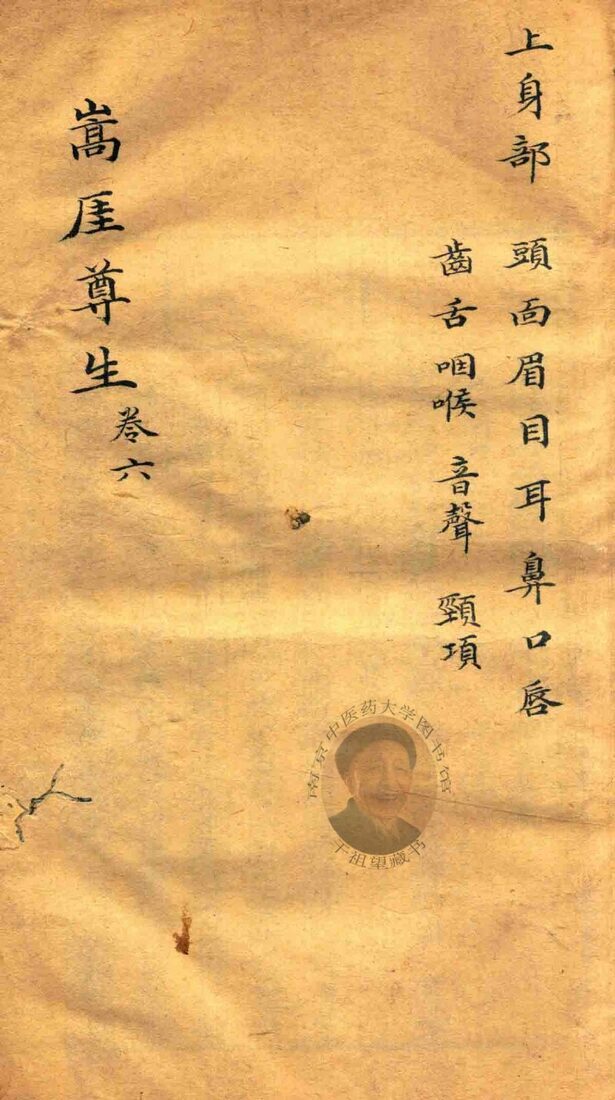 上身部 頭面眉目耳鼻口唇
齒舌咽喉 音聲 頸項
嵩厓尊生
卷六
南京中医药大学图书馆
干祖望藏书